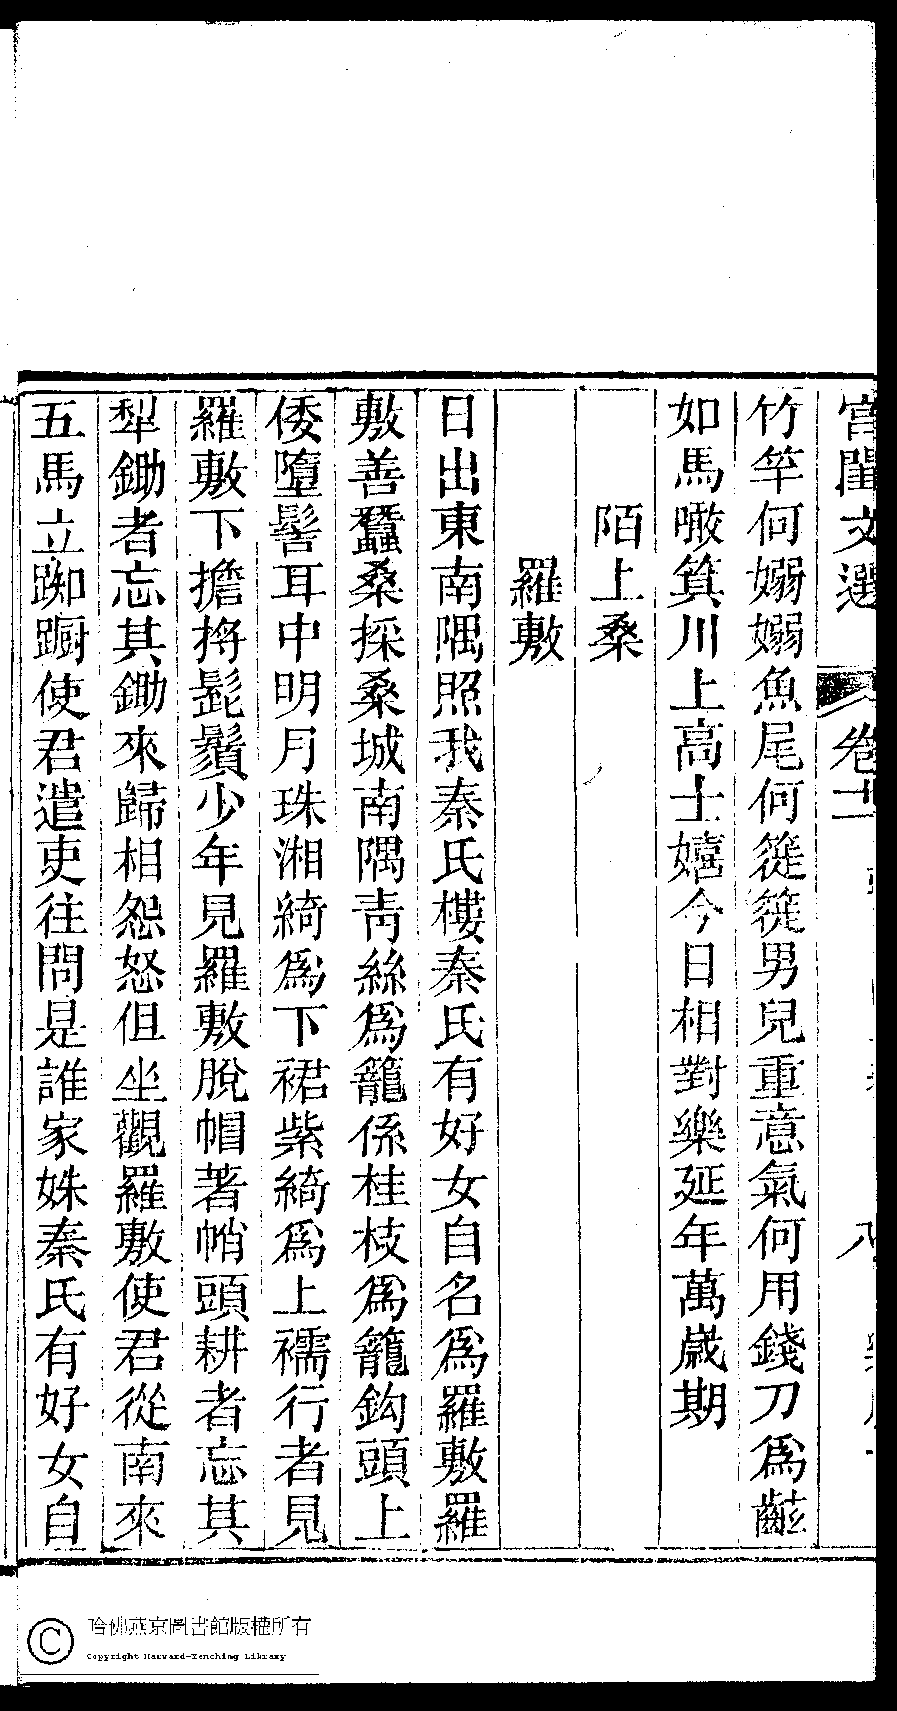 宮閨文選 卷十二 八
竹竿何嫋嫋魚尾何簁簁男兒重意氣何用錢刀爲齩
如馬噉箕川上高士嬉今日相對樂延年萬歲期
陌上桑
羅敷
日出東南隅照我秦氏樓秦氏有好女自名爲羅敷羅
敷善蠶桑採桑城南隅靑絲爲籠係桂枝爲籠鈎頭上
倭墮髻耳中明月珠湘綺爲下裙紫綺爲上襦行者見
羅敷下擔捋髭鬚少年見羅敷脫帽著帩頭耕者忘其
犁鋤者忘其鋤來歸相怨怒但坐觀羅敷使君從南來
五馬立踟躕使君遣吏往問是誰家姝秦氏有好女自
哈佛燕京圖書館版權所有
Copyright Harvard-Yenching Library